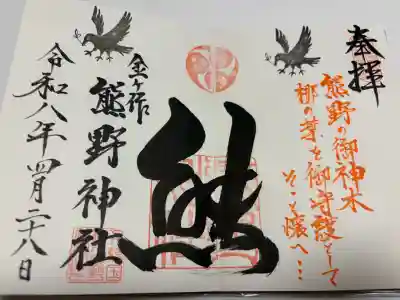 奉拝
熊野の御神木
梛の葉を御守護として
そっと懐へ…
熊
金ヶ作
熊野神社
令和八年四月二十八日